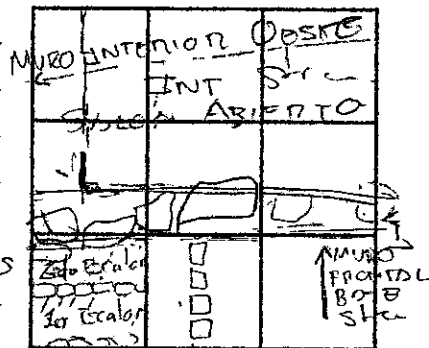 MURO INTERIOR OESTE
INT Str
ABIERTO
2do Escalon
1er Escalon
MURO
FRONTAL
BASE
Str